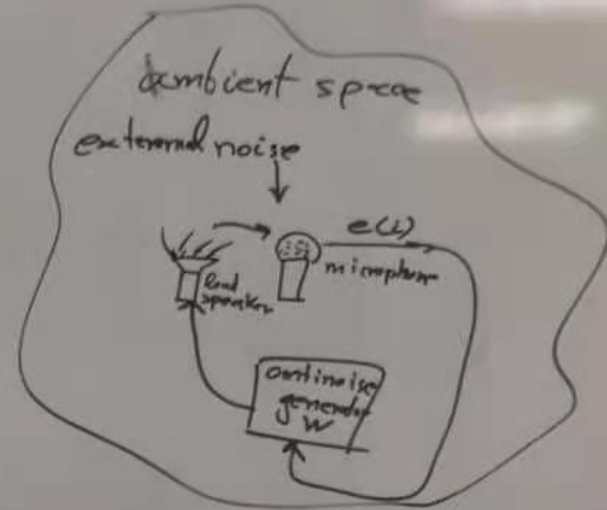 ambient space
external noise
e(i)
microphone
loud
speaker
antinoise
generator
W